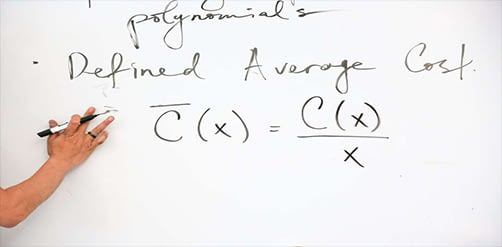 polynomial's
· Defined Average Cost.
C̅(x) = C(x)/x